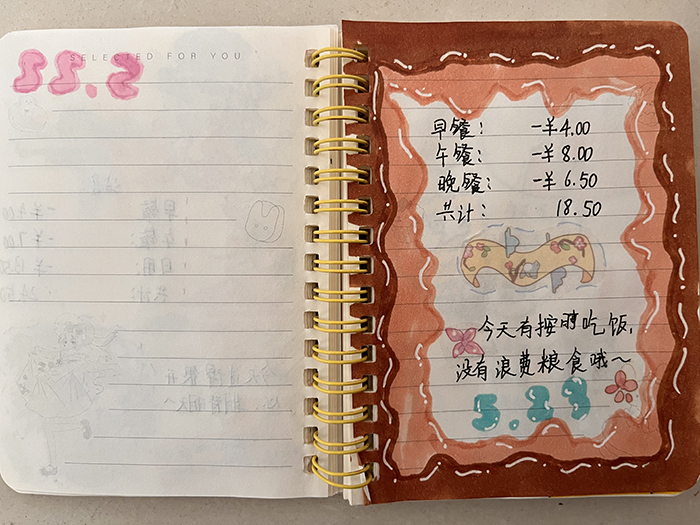 SELECTED FOR YOU
早餐： -¥4.00
午餐： -¥8.00
晚餐： -¥6.50
共计： 18.50
今天有按时吃饭，
没有浪费粮食哦～
5.23